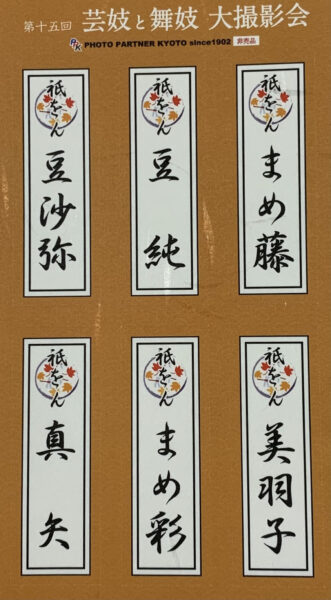 第十五回 芸妓と舞妓 大撮影会
PK PHOTO PARTNER KYOTO since1902 非売品
祇をん
まめ藤
祇をん
豆純
祇をん
豆沙弥
祇をん
美羽子
祇をん
まめ彩
祇をん
真矢